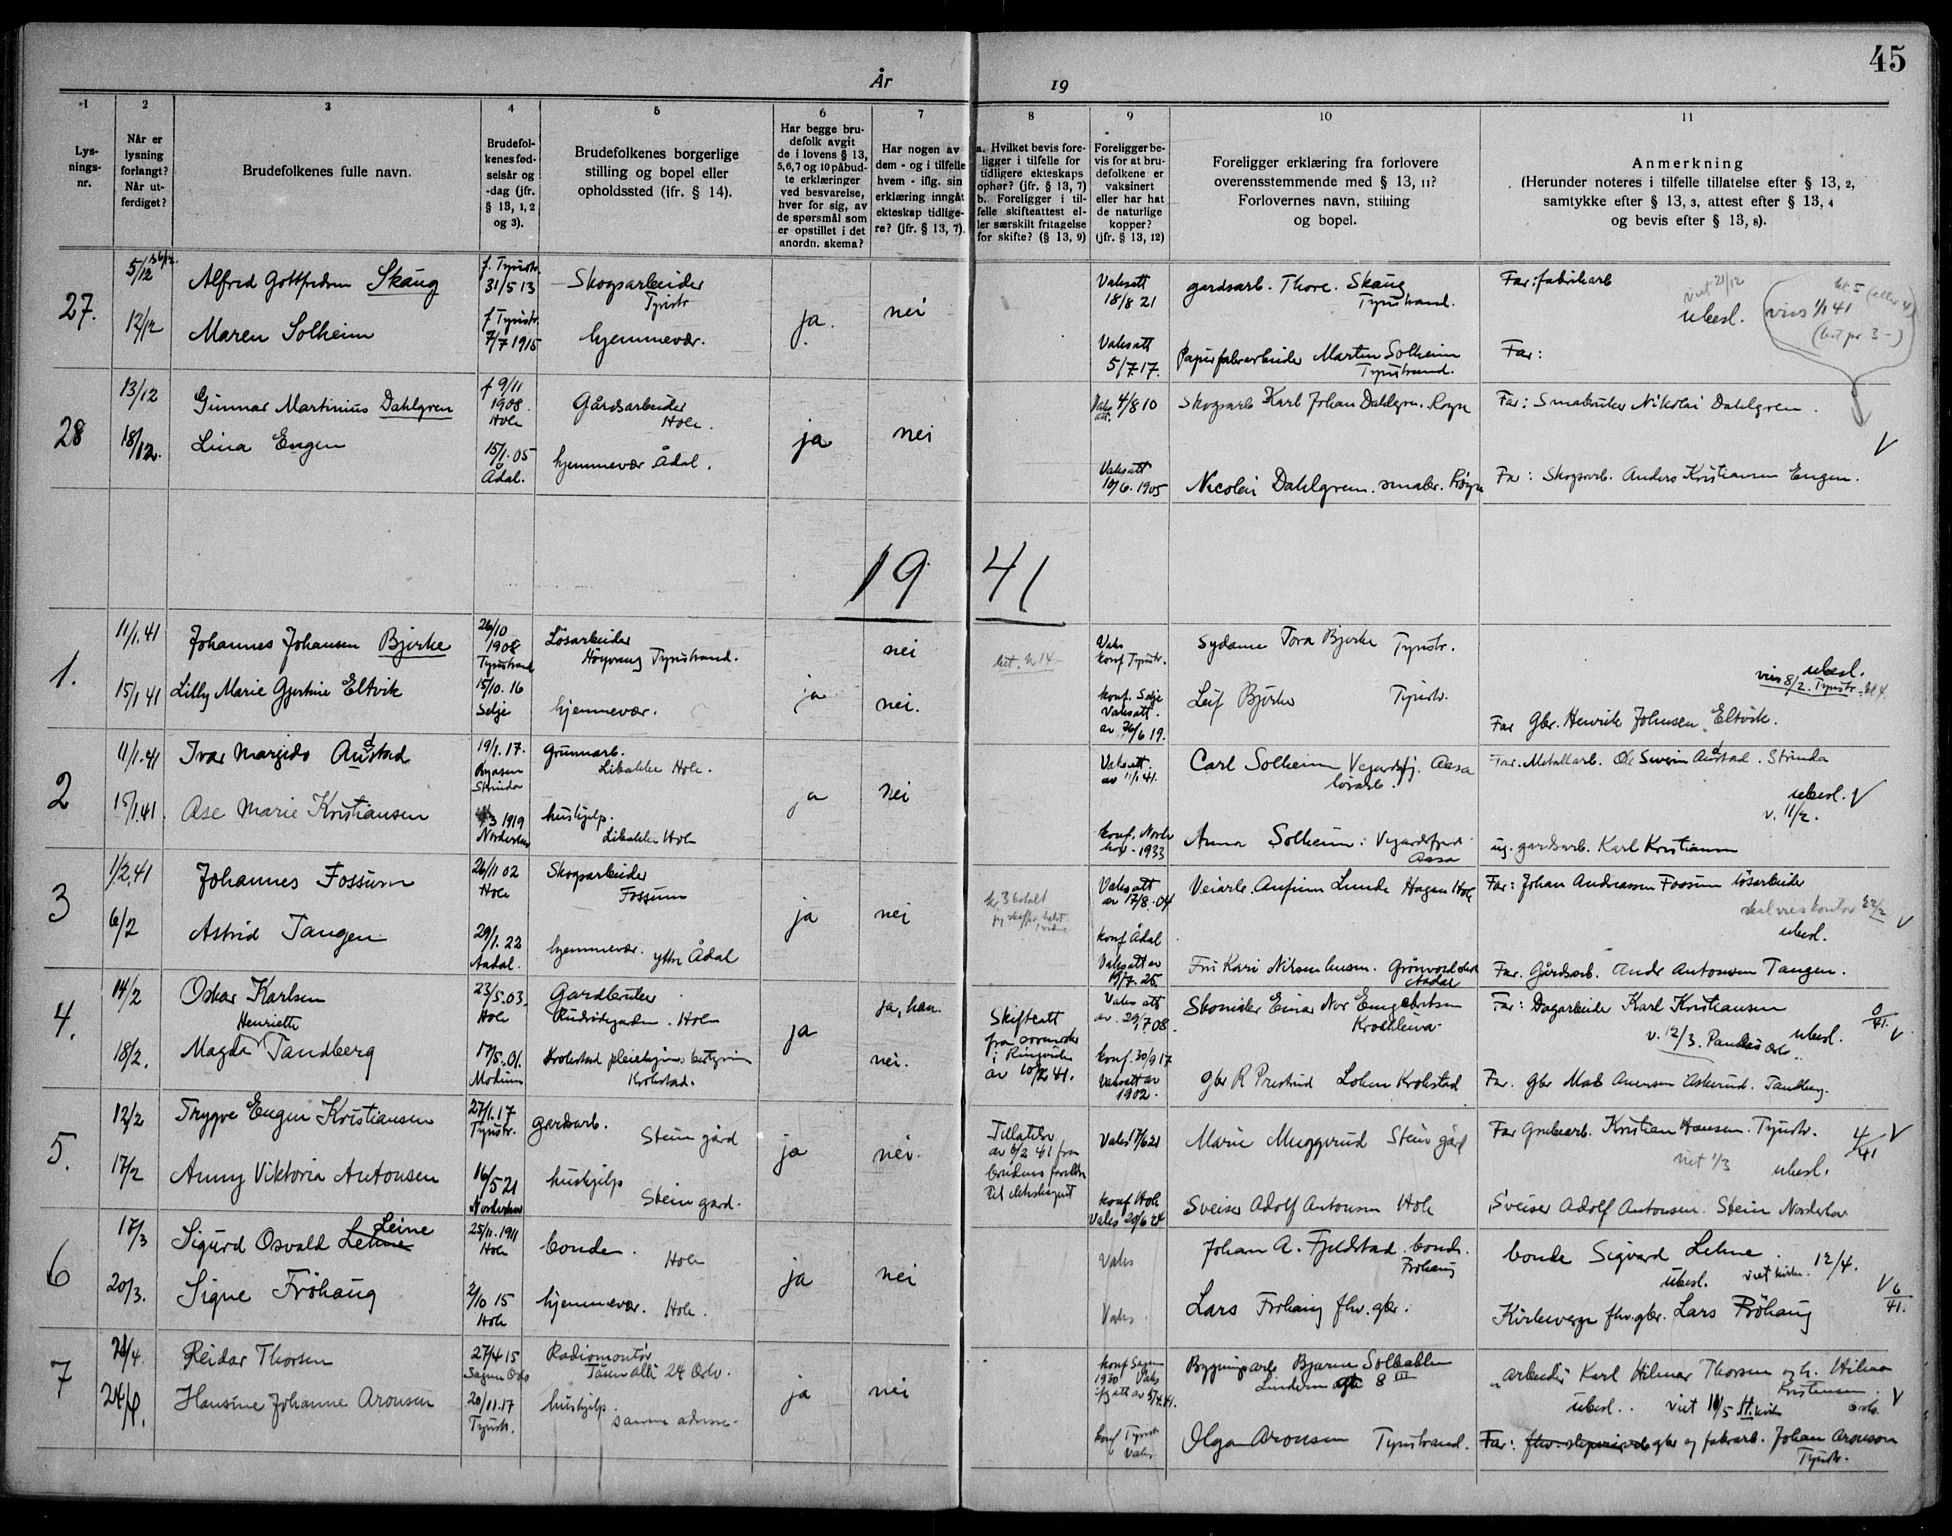 45
År
19
1
2
3
4
5
6
7
8
9
10
11
Lys-
nings-
nr.
Når er
lysning
forlangt?
Når ut-
ferdiget?
Brudefolkenes fulle navn.
Brudefol-
kenes fød-
selsår og
-dag (jfr.
§ 13, 1, 2
og 3).
Brudefolkenes borgerlige
stilling og bopel eller
opholdssted (ifr. § 14).
Har begge bru-
defolk avgit
de i lovens § 13,
5,6,7 og 10 påbud-
te erklæringer
ved besvarelse,
hver for sig, av
de spørsmål som
er opstillet i det
anordn. skema?
Har nogen av
dem - og i tilfelle
hvem - iflg. sin
erklæring inngåt
ekteskap tidlige-
re? (jfr. § 13, 7).
a. Hvilket bevis fore-
ligger i tilfelle for
tidligere ekteskaps
ophør? (jfr. § 13, 7)
b. Foreligger i til-
felle skifteattest el-
ler særskilt fritagelse
for skifte? (§ 13, 9)
Foreligger be-
vis for at bru-
defolkene er
vaksinert
eller har hat
de naturlige
kopper?
(jfr. § 13, 12)
Foreligger erklæring fra forlovere
overensstemmende med § 13, 11?
Forlovernes navn, stilling
og bopel.
Anmerkning
(Herunder noteres i tilfelle tillatelse efter § 13, 2,
samtykke efter § 13, 3, attest efter § 13, 4
og bevis efter § 13, 8).
27.
5/12
12/12
Alfred Gottfredsen Skaug
Maren Solheim
f. Tyristr.
31/5 13
f Tyristr.
7/7 1915
Skogsarbeider
Tyristr
hjemmevær.
ja.
nei
Vaksatt
18/8 21
Vaksatt
5/7.17.
gardsarb. Thore. Skaug
Tyristrand.
Papirfabrarbeider Martin Solheim
Tyristrand.
Far: fabrikarb
viet 21/12
ubesl.
vies 1/1 41
Far:
28
13/12
18/12.
Gunnar Martinius Dahlgren
Lina Engen
f 9/11
1908.
Hole
15/1.05
Ådal.
Gårdsarbeider
Hole.
hjemmevær Ådal.
ja
nei
Vaks att. 4/8 10
Vaksatt
10/6. 1905
Skogsarb Karl Johan Dahlgren.
Nicolai Dahlgren. smabr.
Far: Smabruker Nikolai Dahlgren.
Far: Skogsarb. Anders Kristiansen Engen.
V
19 41
1.
11/1.41
15/1 41
Johannes Johansen Bjerke
Lilly Marie Gjertine Eltvik
26/10
1908
Tyristrand
15/10. 16
Selje
Løsarbeider
Høyvang Tyristrand.
hjemmevær.
ja
nei
nei.
Vaks
konf Tyristr.
konf. Selje
Vaksatt.
av 26/6 19.
Sydame Tora Bjerke Tyristr.
Leif Bjerke Tyristr.
ubesl.
vies 8/2. Tyristr. kl 4.
Far Gbr. Henrik Johnsen Eltvik.
2
11/1.41
15/1.41.
Ivar Margido Austad
Åse Marie Kristiansen
19/1. 17.
Strinda
3 1919
Norderhov
Grunnarb.
Libakke Hole.
hushjelp.
Libakke Hole
ja
nei
Vaksatt.
av 11/1 41.
konf. Norderh
1933
Carl Solheim Vegardsfj. Aasa
løsarb.
Anna Solheim: Vegardsfjerd.
Aasa
Far. Metallarb. Ole Sverin Austad. Strinda
ubesl. V
v. 11/2.
ug. gardsarb. Karl Kristiansen
3
1/2.41
6/2
Johannes Fossum
Astrid Tangen
26/11 02
Hole
29/1. 22
Aadal.
Skogsarbeider
Fossum
hjemmevær. ytre Ådal
ja
nei
kr 3 betalt
Vaksatt
av 17/8.04
konf Ådal
Vaksatt av
Veiarb. Anfinn Lunde Hagan Hole
Fru Kari Nilsen
Aadal
Far: Johan Andreassen Fossum løsarbeider
skal vies kontor 22/2
ubesl.
V
Far. Gårdsarb. Andr Antonsen Tangen.
4.
14/2
18/2.
Oskar Karlsen
Henriette
Magda Tandberg
23/5.03.
Hole
17/5.01.
Modum
Gardbruker
Hole
Krokstad pleiehjem, bestyrerin
Krokstad.
ja
ja, han.
nei.
Skifteatt
fra sorenskr
i Ringerike
av 10/2 41.
Vaks att
av. 29/7 08.
konf. 30/9 17
Vaksatt av
1902.
Skomaker Einar Nor Engebretsen
Krokkleiva.
gbr R Prestrud Lohen Krokstad
Far: Dagarbeider Karl Kristiansen
v. 12/3.
ubesl.
V
Far. gbr Mads Amersen Askerud. Tandberg.
5.
12/2
17/2
Trygve Eugen Kristiansen
Anny Viktoria Antonsen
27/1.17
Tyristr.
16/5 21
Norderhov
gardsarb.
Stein gård
hushjelp
Stein gard.
ja
nei.
Tillatelse
av 6/2 41 fra
brudens foreldre
til ekteskapet
Vaks! 17/6 21
konf Hole
Vaks 20/6 24
Marie Muggerud Stein gård
Sveiser Adolf Antonsen Hole
Far Grubearb. Kristian Hansen. Tyristr.
4/41
V
viet 1/3
ubesl.
Sveiser Adolf Antonsen. Stein Norderhov
6
17/3
20/3.
Leine
Sigurd Osvald Lehne
Signe Frøhaug
25/11.1911
Hole
2/10 15
Hole
bonde. Hole
hjemmevær. Hole.
ja
nei
Vaks
Vaks
Johan A. Fjeldstad. bonde.
Frøhaug
Lars Frøhaug fhv. gbr.
bonde Sigvard Lehne.
ubesl. viet kirke. 12/4.
V 6/41.
Kirkeverge fhv. gbr. Lars Frøhaug
7
21/4.
24/4.
Reidar Thorsen
Hansine Johanne Aronsen
27/4 15
Sagene Oslo
20/11.17
Tyristr.
Radiomontør
Tåsen allé 24 Oslo.
hushjelp.
samme adresse.
ja
nei
konf Sagene
1930 Vaks
konf Tyristr
Vaks
Bygningsarb. Bjarne Solbakken
8 III
Olga Aronsen Tyristrand.
arbeider Karl Hilmar Thorsen og h. Hilma
Kristiansen.
Oslo.
ubesl.. viet 10/5
V
Far: gbr og fabrarb. Johan Aronson
Tyristr.